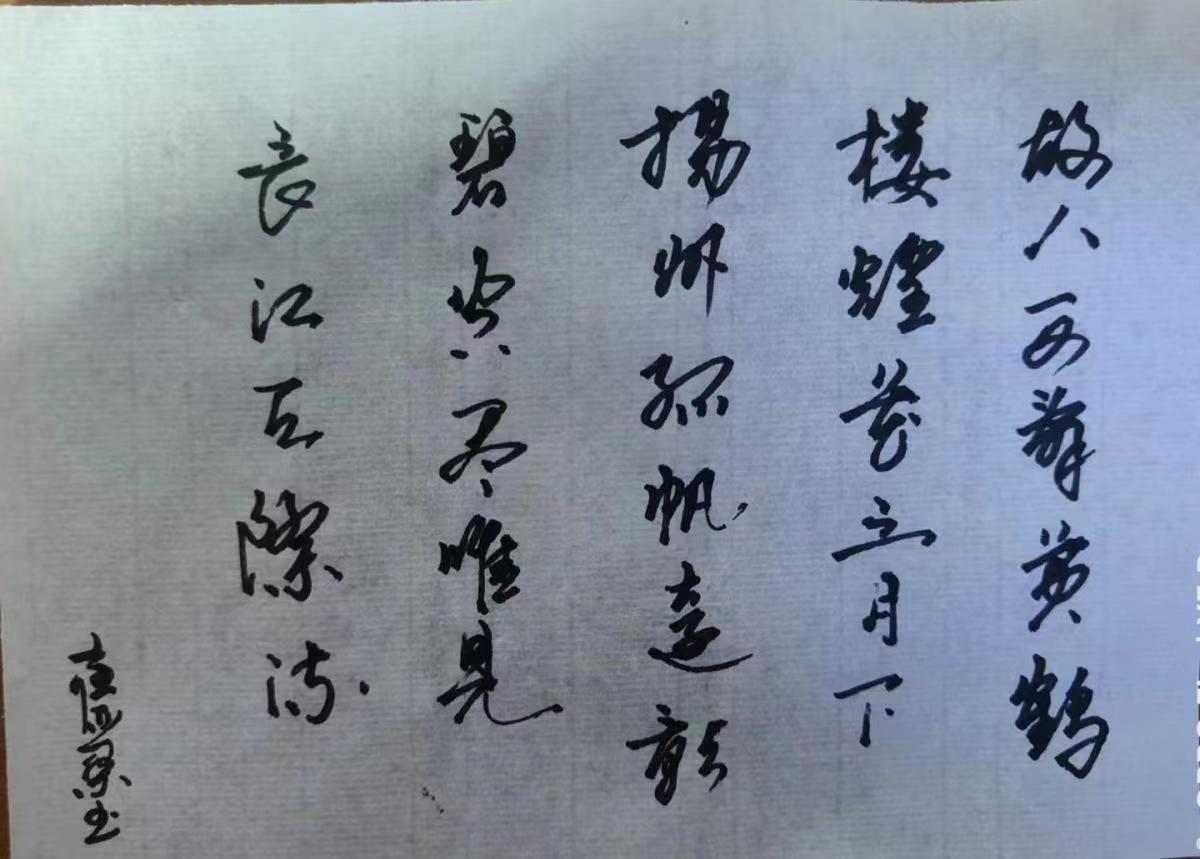 故人西辞黄鶴
楼煙花三月下
揚州孤帆遠影
碧空尽唯見
長江天際流